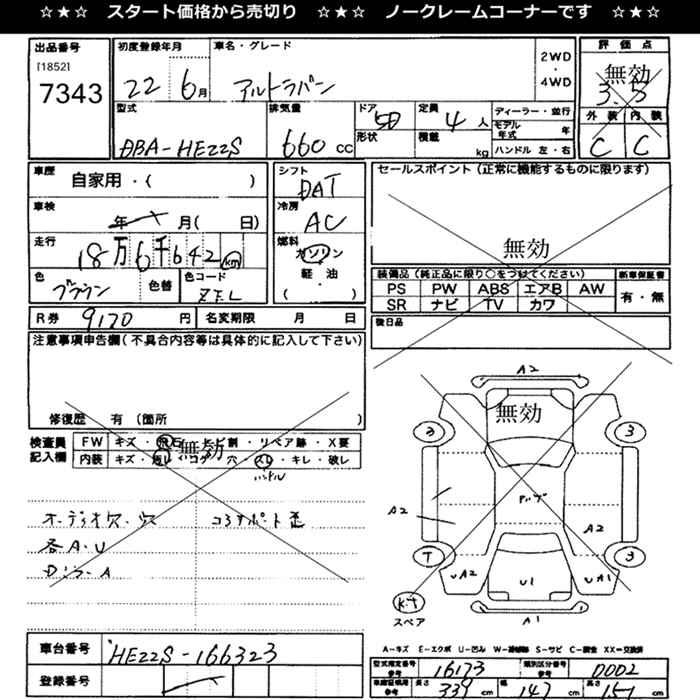 ☆★☆ スタート価格から売切り ☆★☆ ノークレームコーナーです ☆★☆
出品番号 初度登録年月 車名・グレード 2WD ・ 4WD 評価点
[1852]
7343 22 6月 アルトラパン 無効 3.5
型式 排気量 ドア 5D 定員 4人 ディーラー・並行 外装 内装
DBA-HE22S 660cc 形状 積載 kg モデル年式 年 C C
ハンドル 左・右
車歴 自家用・( ) シフト DAT セールスポイント(正常に機能するものに限ります)
車検 年 月( 日) 冷房 AC
無効
走行 18万6千642km 燃料 ガソリン 軽・油 ( )
装備品(純正品に限り○をつけてください) 新車保証書
色 ブラウン 色替 色コード ZEL PS PW ABS エアB AW 有・無
SR ナビ TV カワ
R券 9170円 名変期限 月 日 後日品
注意事項申告欄(不具合内容等は具体的に記入して下さい)
修復歴 有(箇所 )
検査員記入欄 FW キズ・飛石・ヒビ割・リペア跡・X要
内装 キズ・汚レ・コゲ・穴・スレ・キレ・破レ
無効
ハンドル
オーディオ欠.穴 コアサポート歪
各A.U
A2
無効
3 3
ルーフ
A2 A2
T 3
UA2 U1 UA1
スペア
A1
A-キズ E-エクボ U-凹み W-補修跡 S-サビ C-腐食 XX-交換済
車台番号 HE22S-166323
登録番号
型式指定番号 参考 16173 類別区分番号 参考 0002
長 339cm 幅 147cm 高 157cm